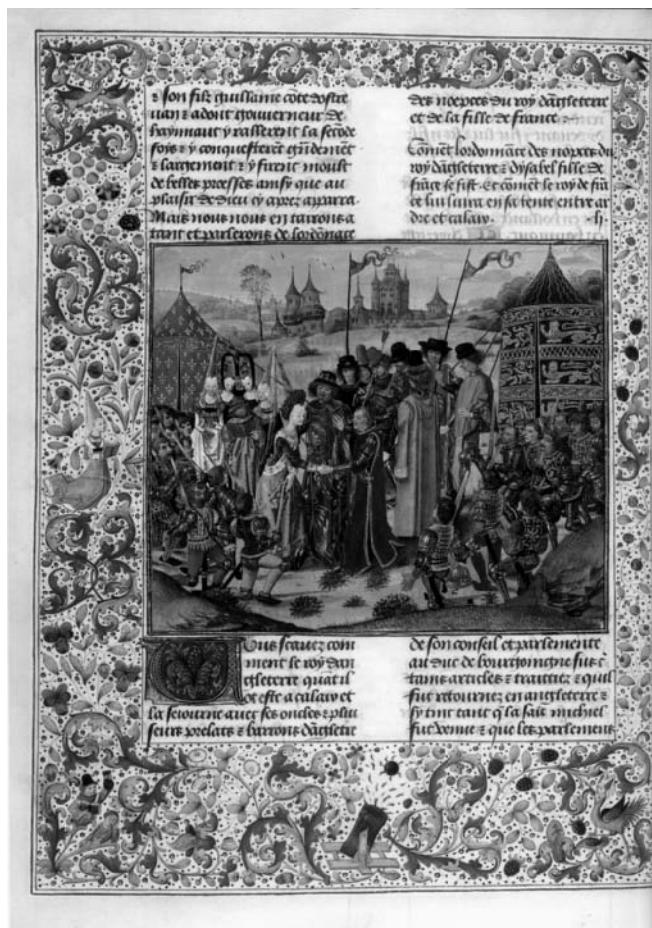 ⁊ son filz guillame cōte dostre
uan ⁊ adont gouverneur de
haynnaut y rallerent la secōde
fois ⁊ y conquesterēt grādemēt
⁊ largement ⁊ y firent moult
de belles proesses ainsy que au
plaisir de dieu cy apres apparra.
Mais nous nous en tairons a
tant et parlerons de lordōnāce
des noepces du roy dāgleterre
et de la fille de france
Comēt lordonnance des nopces du
roy dāgleterre ⁊ dysabel fille de
frāce se fist. Et comēt le roy de frā
ce lui livra en sa tente entre ar
dre et calaix
Vous scavez com
ment le roy dan
gleterre quāt il
ot este a calaix et
la seiourne avec ses oncles ⁊ plu
seurs prelats ⁊ barons dāgletre
de son conseil et parlemente
au duc de bourgoingne sus c̄
tains articles ⁊ traittiez ⁊ quil
fut retournez en angleterre ⁊
sy tint tant q̄ la saīt michiel
fut venue ⁊ que les parlemens